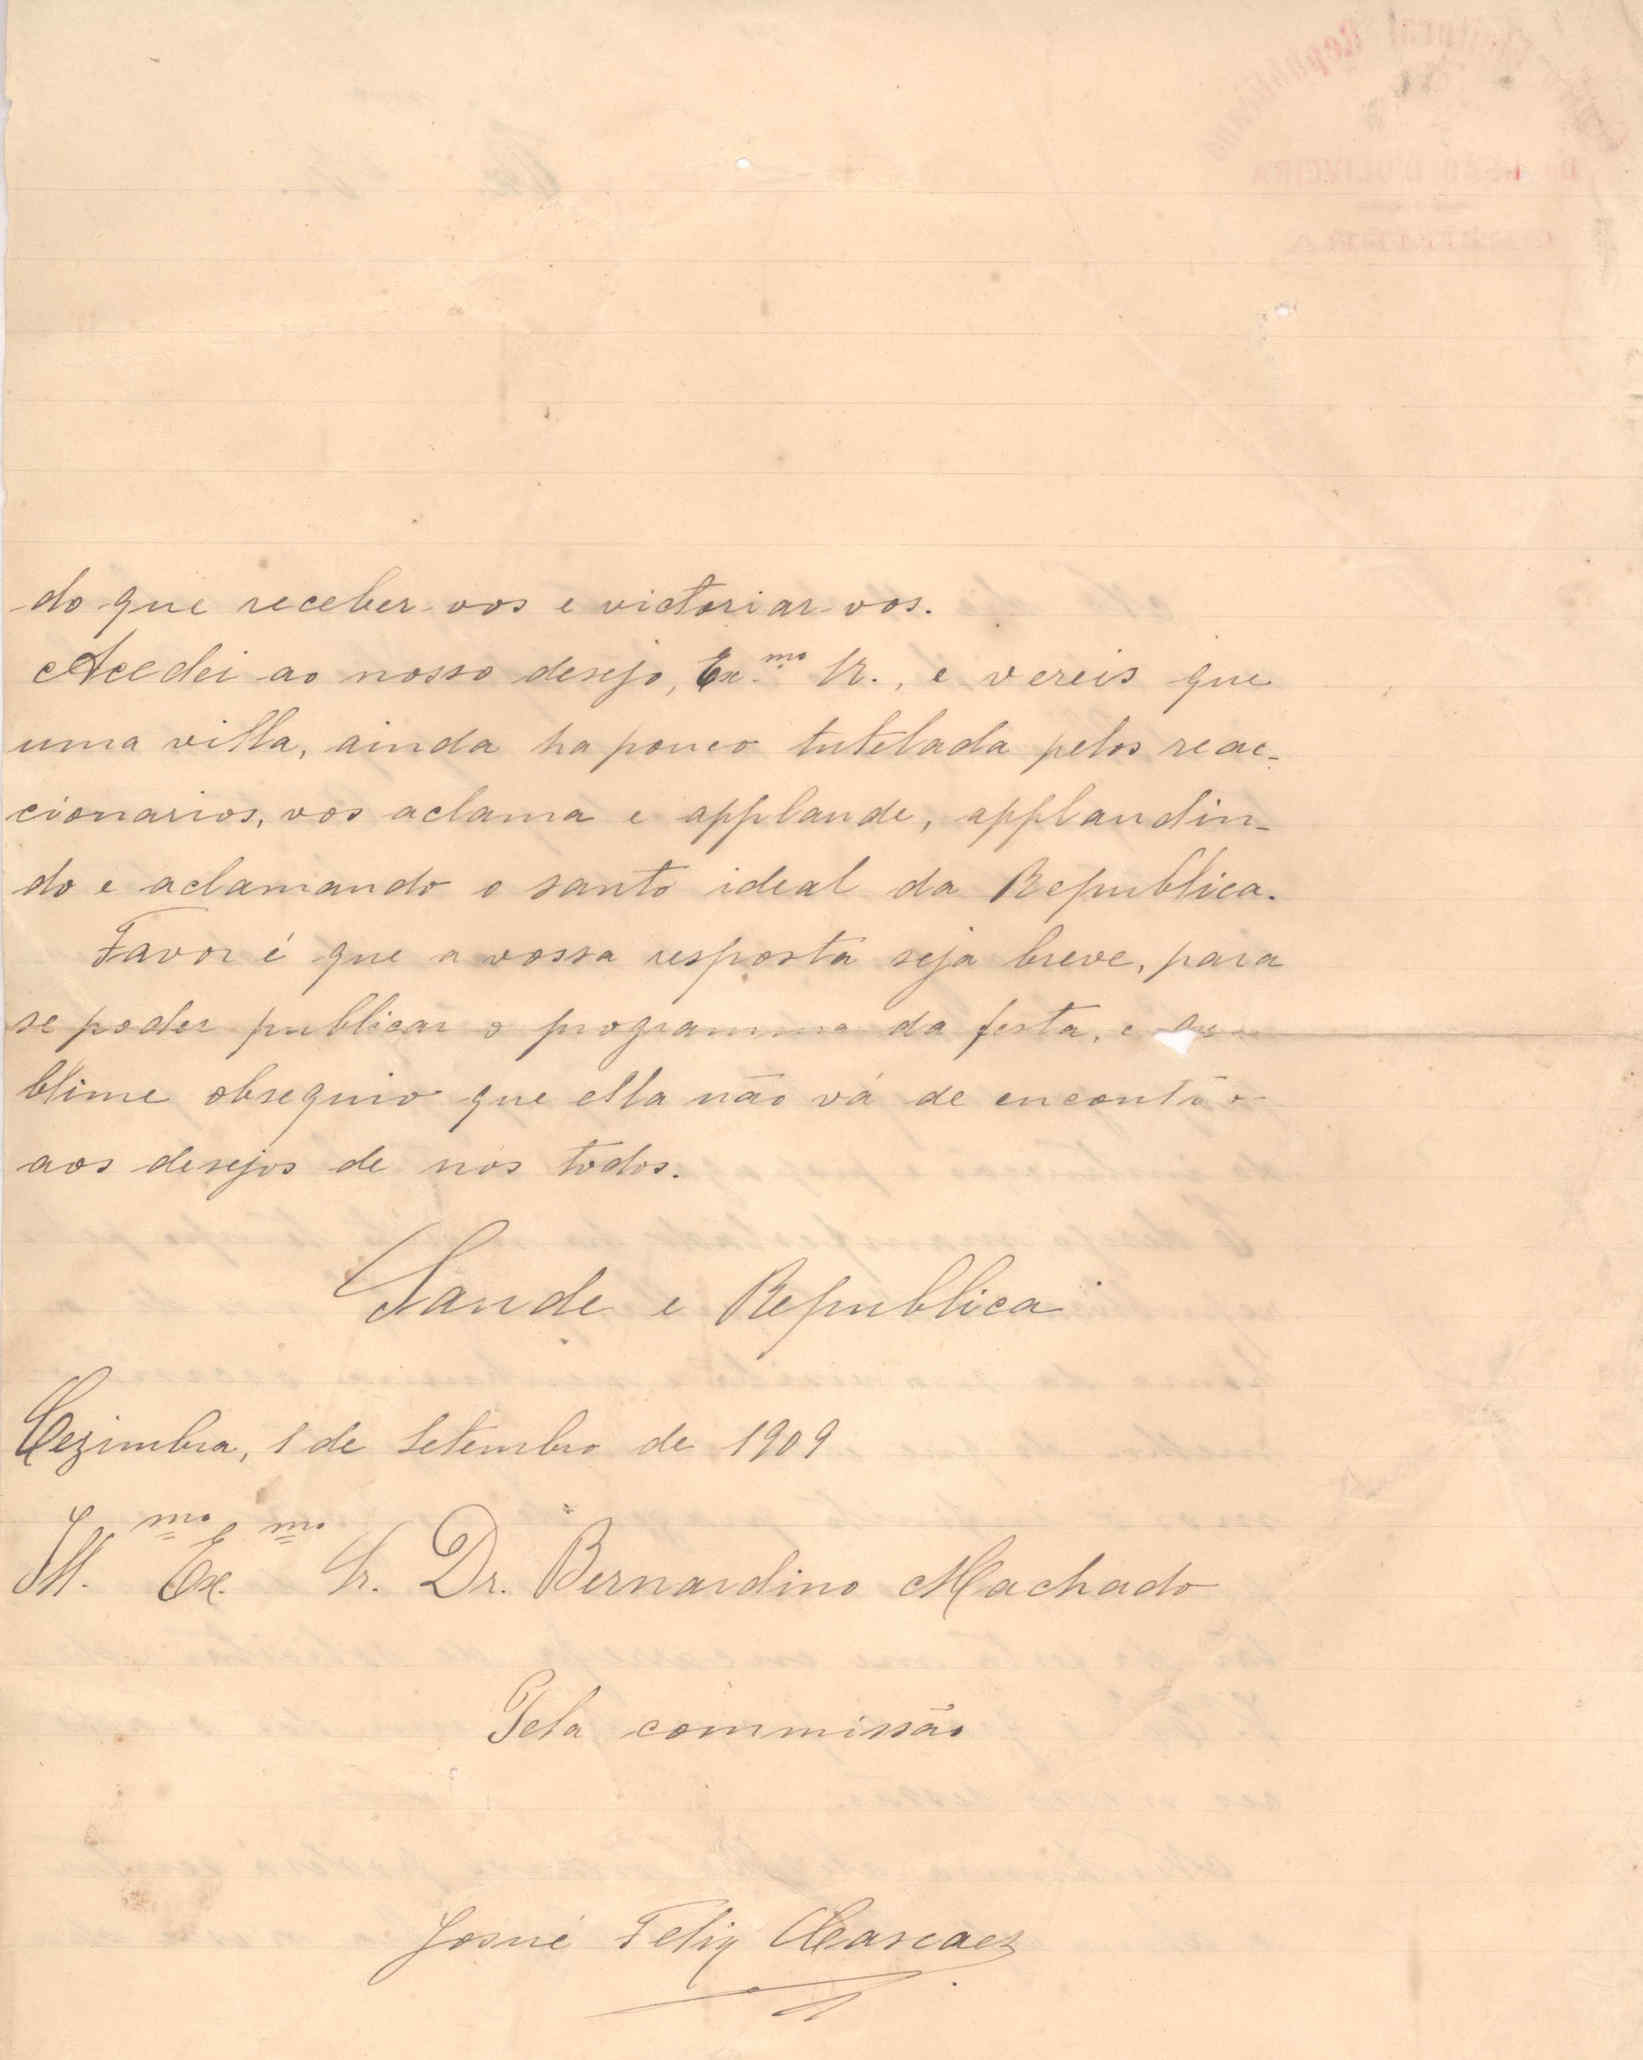 do que receber-vos e victoriar-vos.
Acedei ao nosso desejo, Ex.mo Sr., e vereis que
uma villa, ainda ha pouco tutelada pelos reac-
cionarios, vos aclama e applaude, applaudin-
do e aclamando o santo ideal da Republica.
Favor é que a vossa resposta seja breve, para
se poder publicar o programma da festa, e su-
blime obsequio que ella não vá de encontro
aos desejos de nós todos.
Saude e Republica
Cezimbra, 1 de Setembro de 1909
Ill.mo Ex.mo Sr. Dr. Bernardino Machado
Pela commissão
Josué Feliz